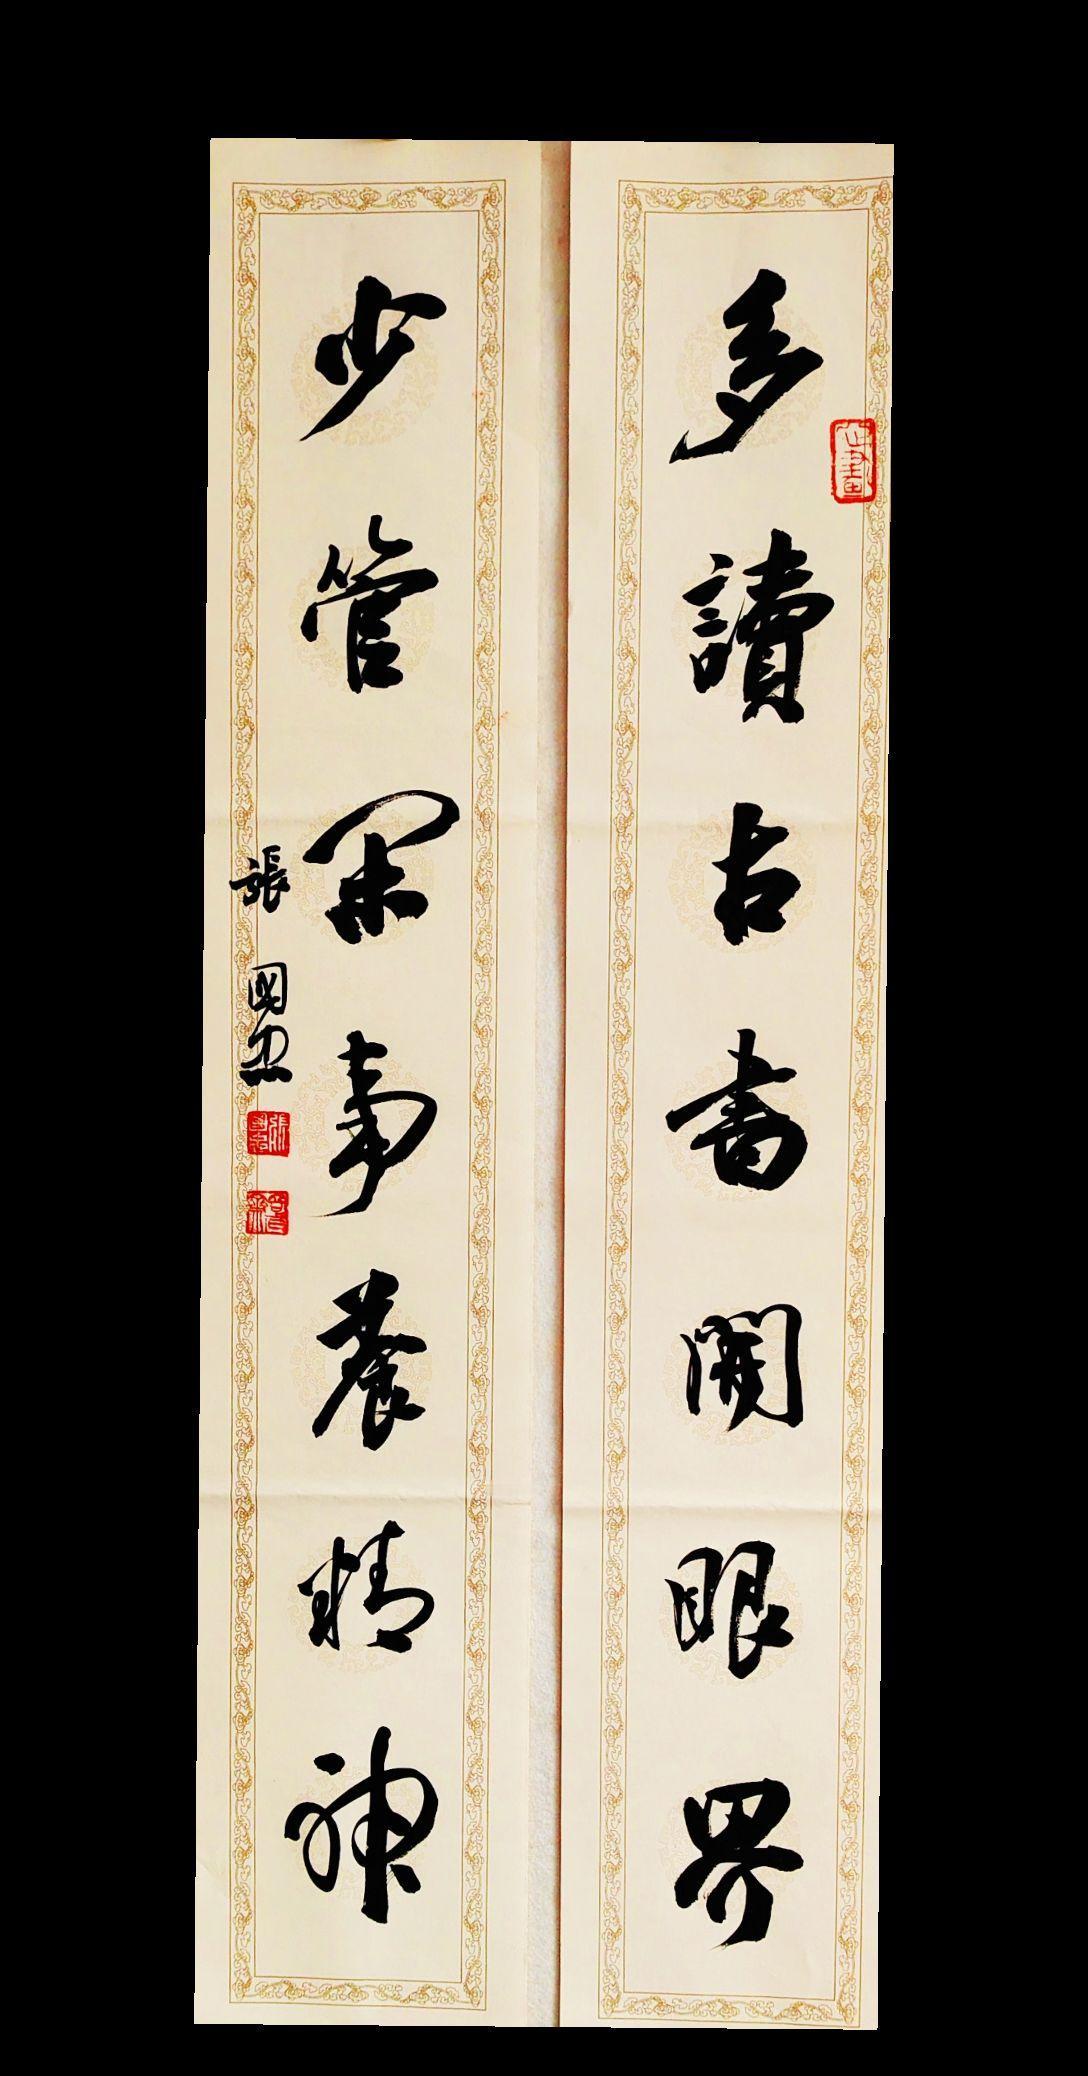 多讀古書開眼界
少管閑事養精神
張國忠